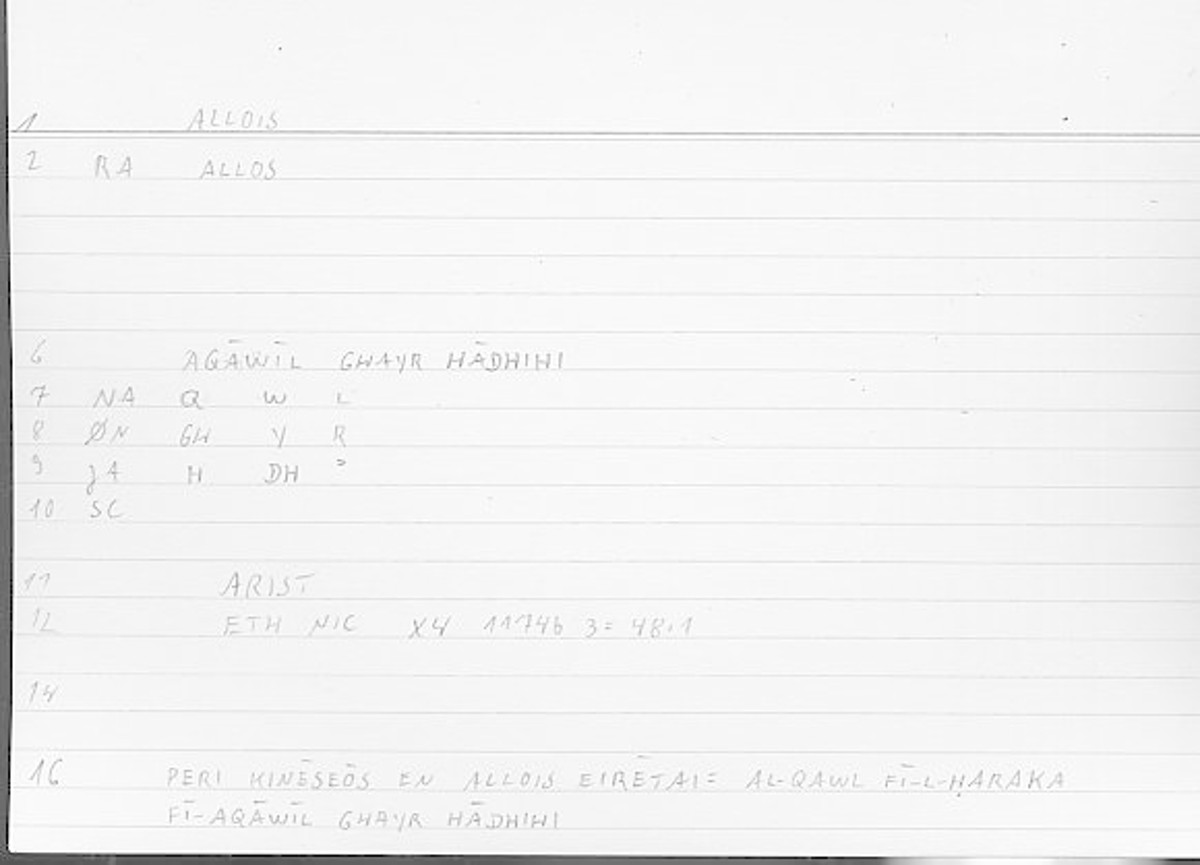 1 ALLOIS
2 RA ALLOS
6 AQĀWĪL GHAYR HĀDHIHI
7 NA Q W L
8 ØN GH Y R
9 ʒA H DH ʾ
10 SC
11 ARIST
12 ETH NIC X4 1174b 3= 48.1
14
16 PERI KINĒSEŌS EN ALLOIS EIRĒTAI= AL-QAWL FĪ-L-ḤARAKA
FĪ-AQĀWĪL GHAYR HĀDHIHI